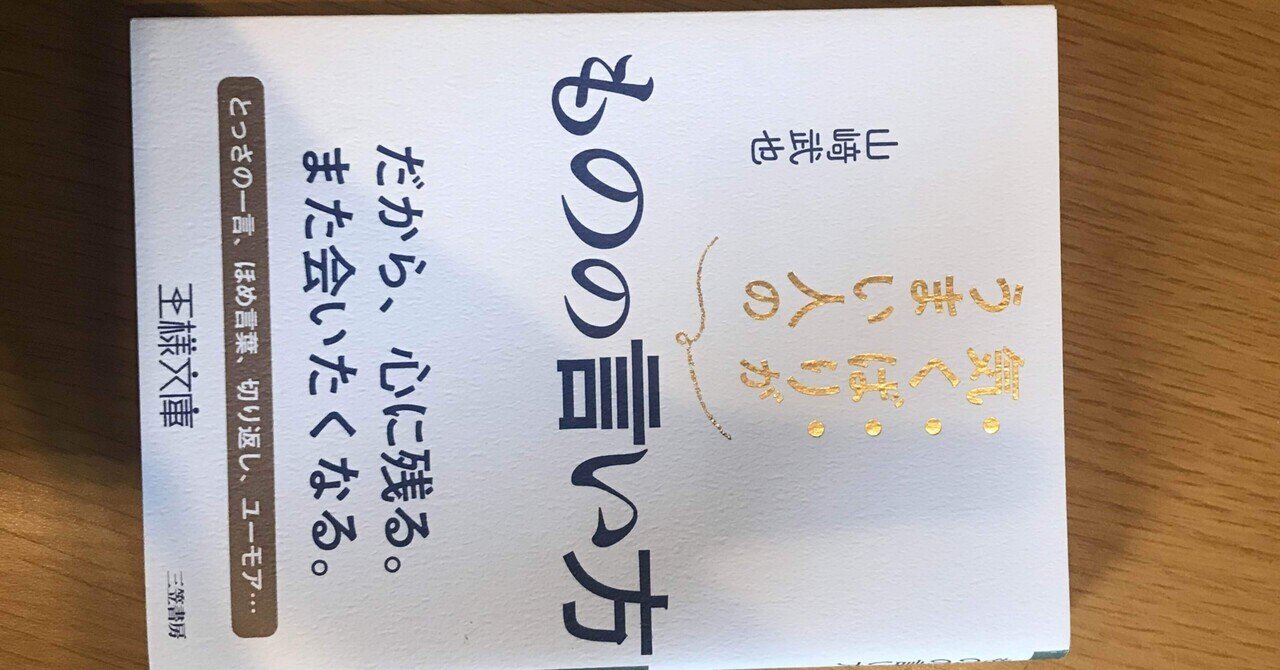 気くばりが
うまい人の
山﨑武也
ものの言い方
だから、心に残る。
また会いたくなる。
とっさの一言、ほめ言葉、切り返し、ユーモア…
王様文庫
三笠書房